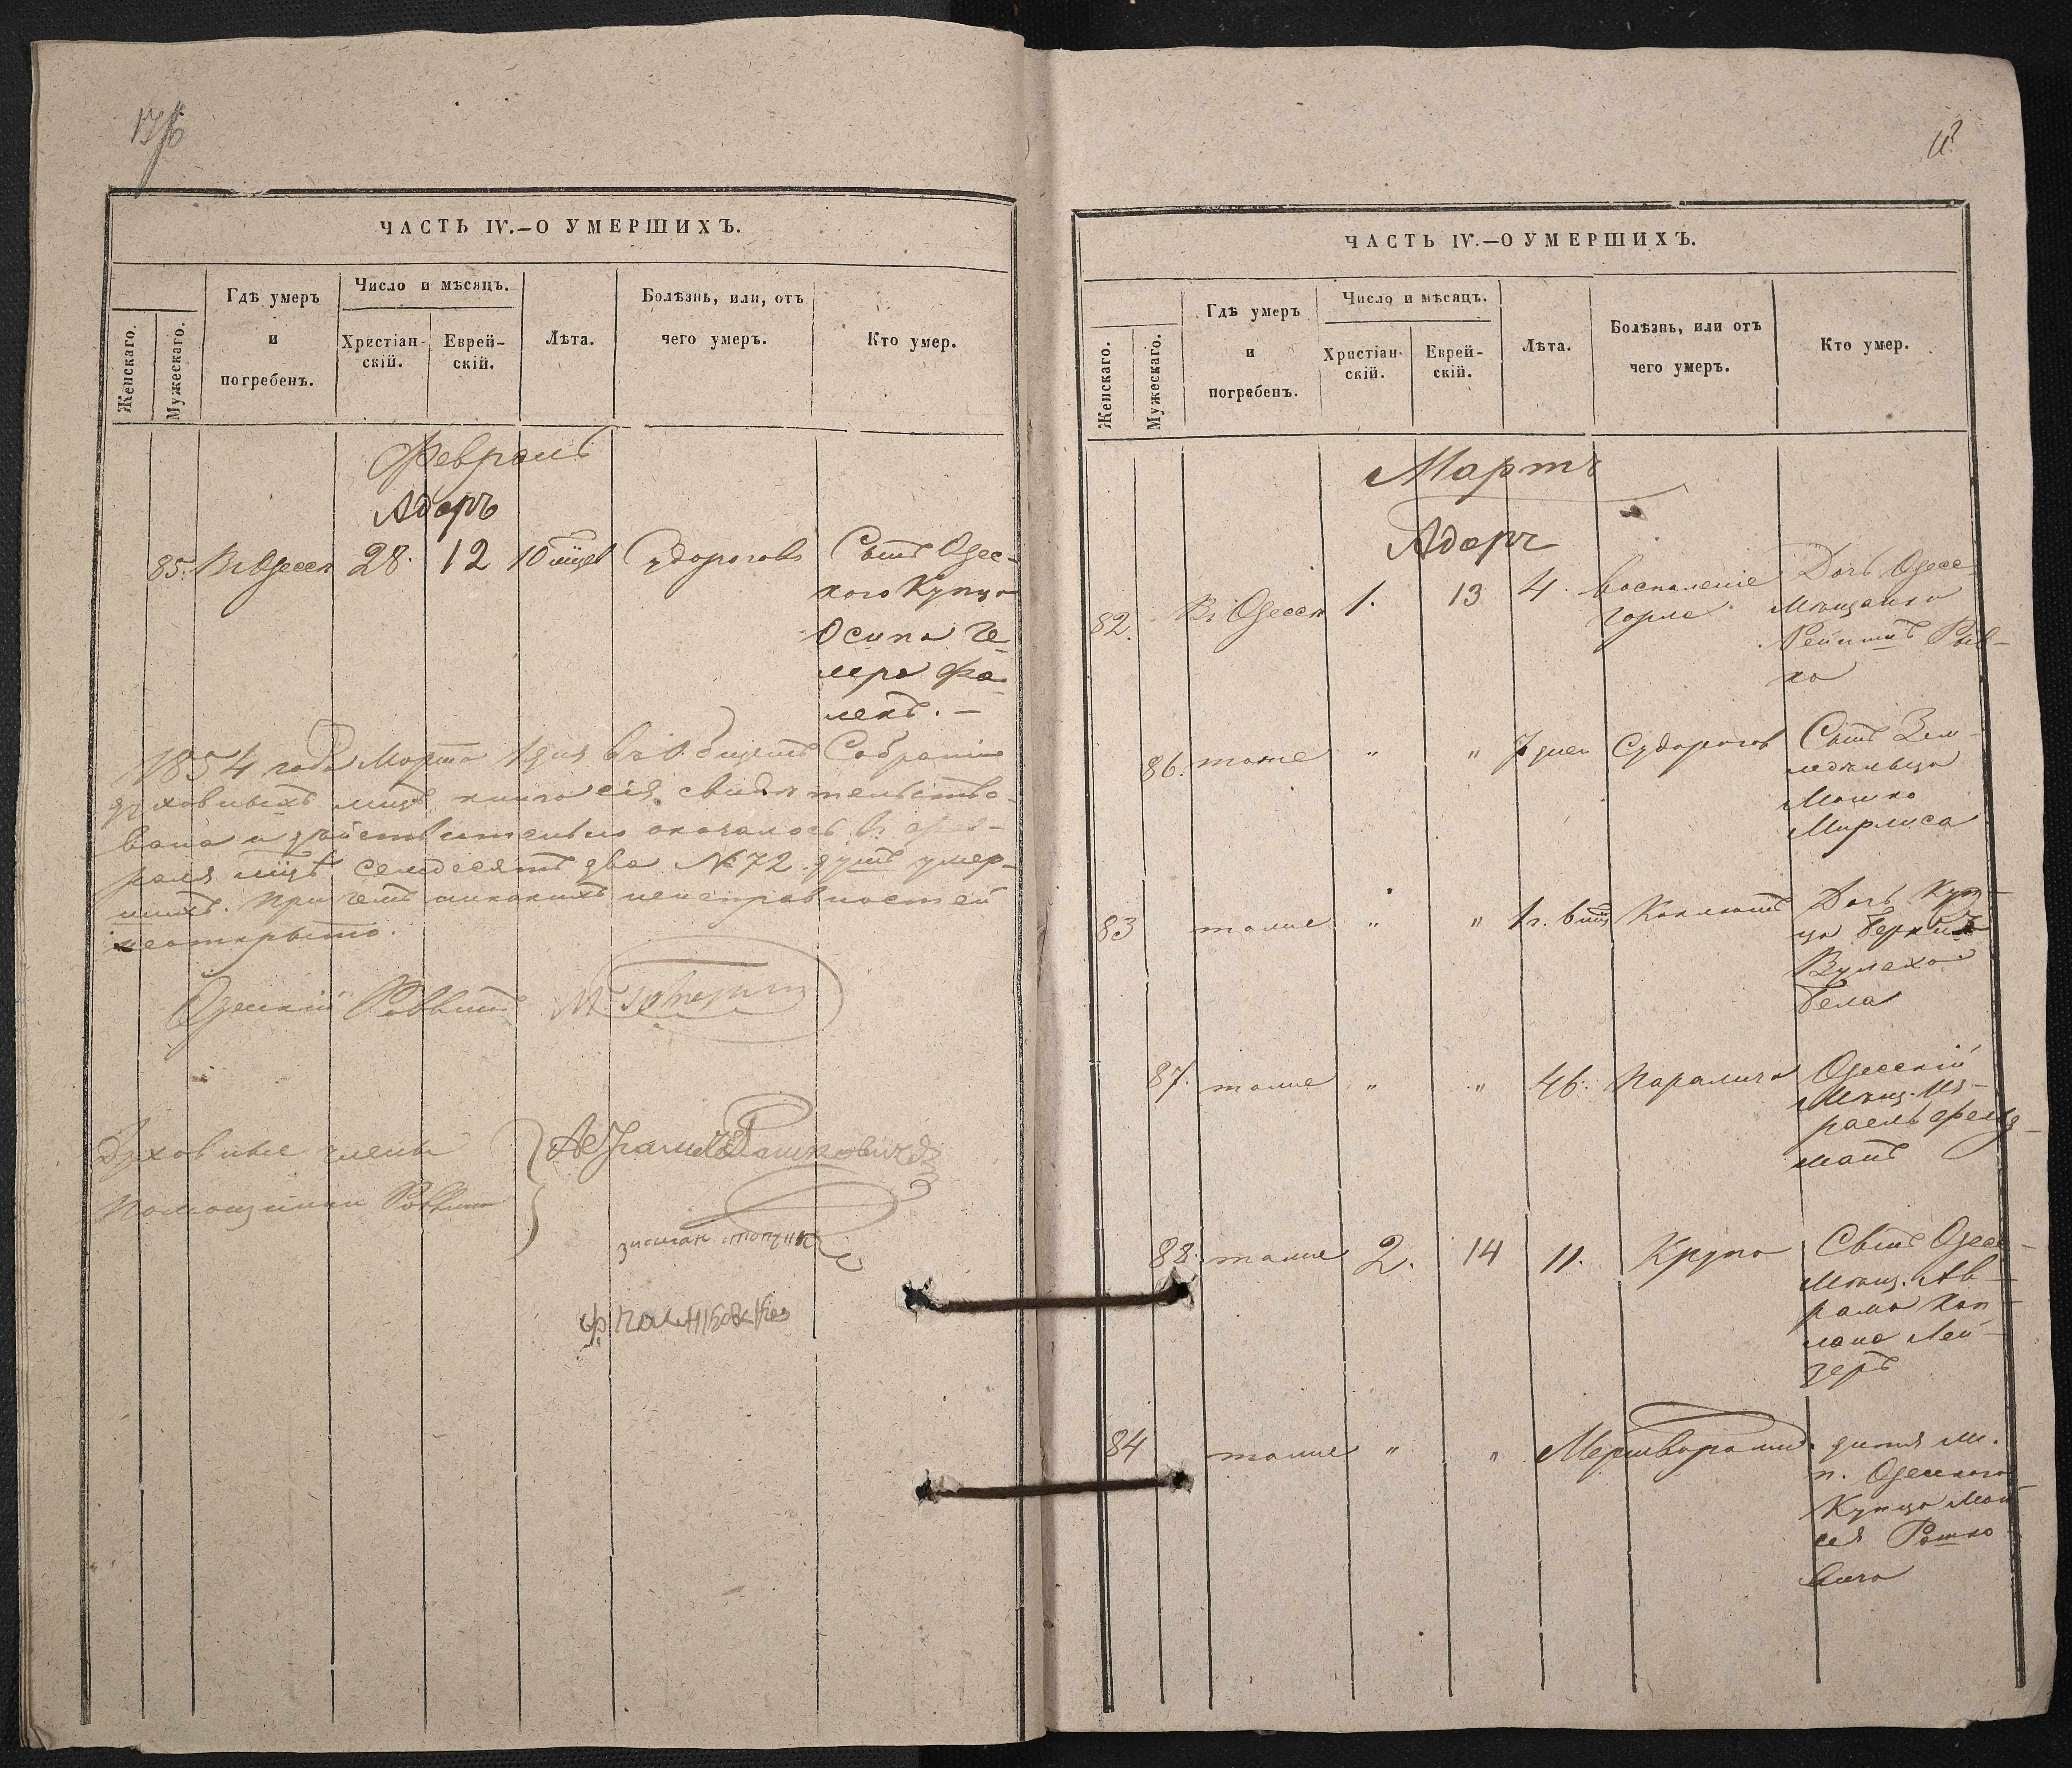 ЧАСТЬ IV.—О УМЕРШИХЪ.
Женскаго.
Мужескаго.
Гдѣ умеръ
и
погребенъ.
Число и мѣсяцъ.
Христіан-
скій.
Еврей-
скій.
Лѣта.
Болѣзнь, или, отъ
чего умеръ.
Кто умер.
Февраль
Адаръ
85. Въ Одессѣ 28. 12 10 мцев Судорогов Сынъ Одес-
кого Купца
Осипа Ге-
лера Фа-
лекъ. —
1854 года Марта 1 дня въ Общемъ Собраніи
духовныхъ лицъ книга сія свидѣтельство-
вана и дѣйствительно оказалось въ Фев-
ралѣ мцѣ семдесятъ два № 72 душъ умер-
шихъ. При чемъ никакихъ неисправностей
неоткрыто.
Одесскій Раввинъ
Духовные члены
Помощники Раввина
ЧАСТЬ IV.—О УМЕРШИХЪ.
Женскаго.
Мужескаго.
Гдѣ умеръ
и
погребенъ.
Число и мѣсяцъ.
Христіан-
скій.
Еврей-
скій.
Лѣта.
Болѣзнь, или отъ
чего умеръ.
Кто умер.
Мартъ
Адаръ
82. Въ Одессѣ 1. 13 4. Воспаленіе Дочь Одесс-
горла Мѣщанка
Рыв-
ка
86. тоже " " 7 дней Судорогов Сынъ Зем-
ледѣльца
Мошко
Мирлиса
83 тоже " " 1 г. 6 мц Коклюшъ Дочь Куп-
ца Берки
Бела
87. тоже " " 46. Паралича Одесскій
Мѣщ. Из-
раель Фельд-
манъ
88. тоже 2. 14 11. Крупа Сынъ Одесс-
Мѣщ. Ав-
рама Кап-
лана Лей-
зеръ
84 тоже " " Мертворожд. дитя м.
п. Одесского
Купца Мои-
сея Рашко-
вича